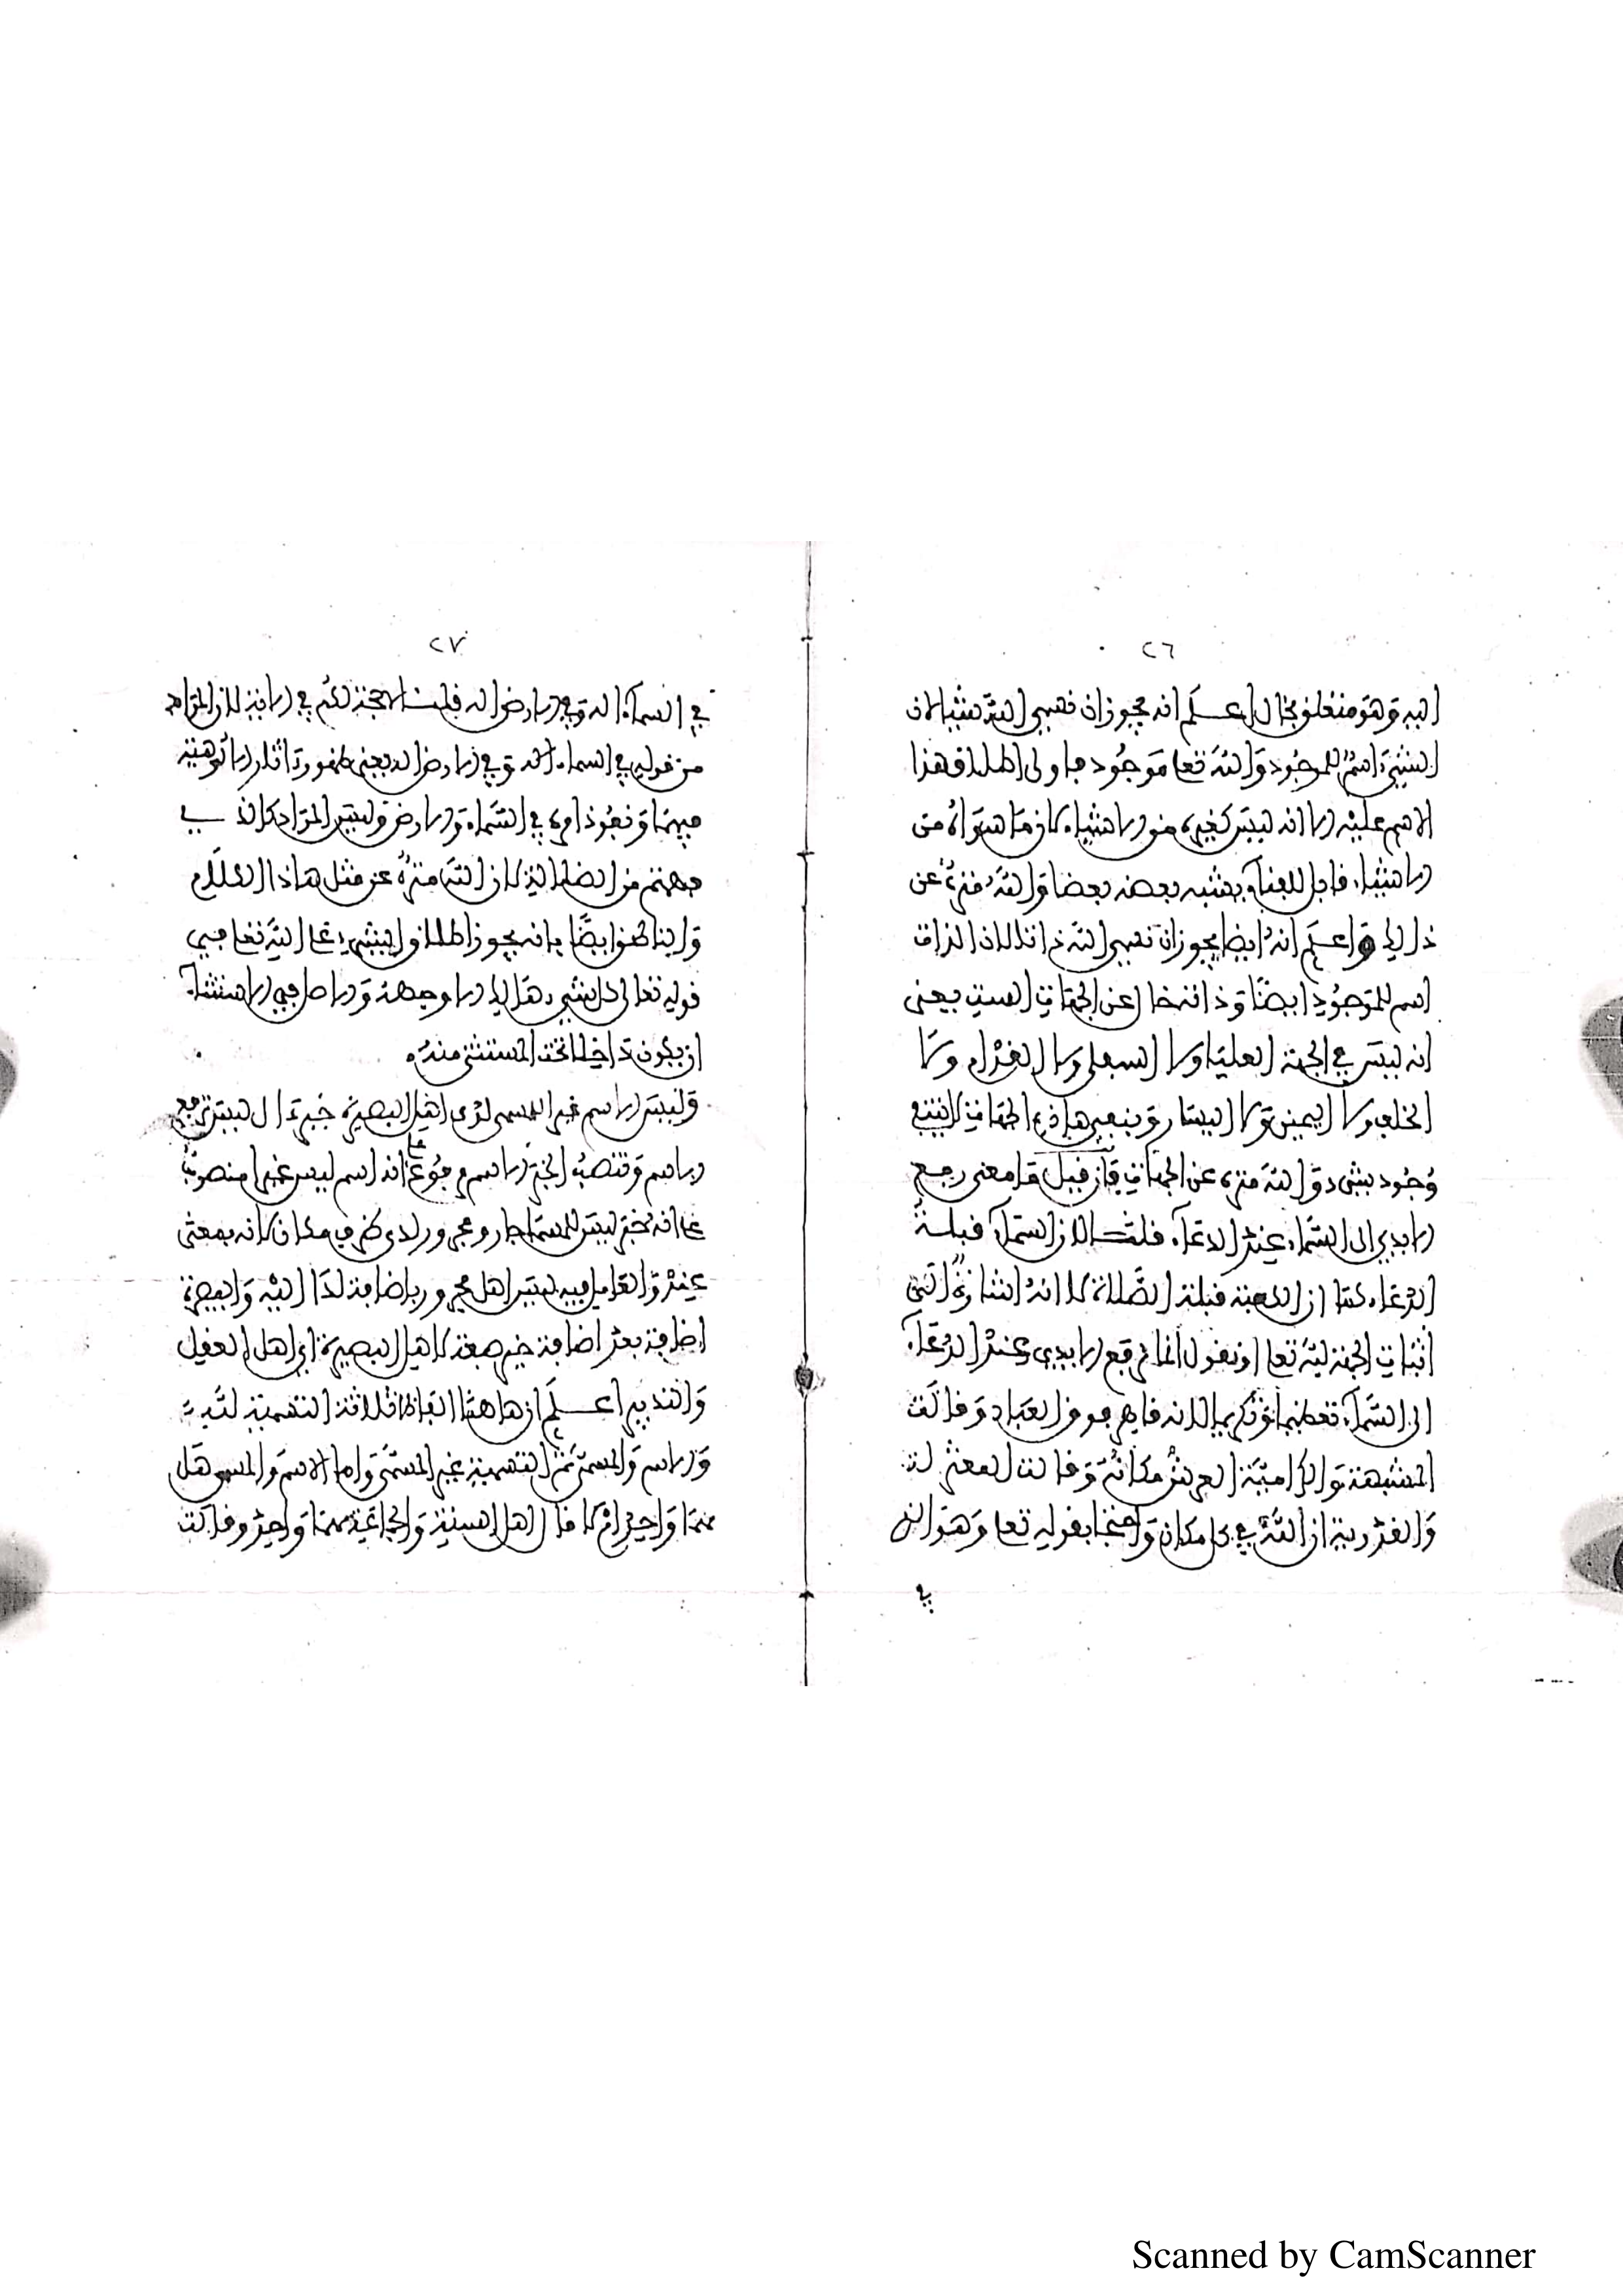 ٢٦
اليه وهو متعلق بخال اعلم انه يجوز ان نسمي الله شيئا لان
الشيء اسم للموجود والله تعا موجود فاولى اطلاق هذا
الاسم عليه الا انه ليس كغيره من الاشياء لان ما سواه من
الاشياء قابل للفناء يشبه بعضه بعضا والله منزه عن
ذالك واعلم انه ايضا يجوز ان نسمي الله ذاتا لان الذات
اسم للموجود ايضا وذاته خال عن الجهات الست يعني
انه ليس في الجهة العليا ولا السفلى ولا القدام ولا
الخلف ولا اليمين ولا اليسار وبنفي هاذه الجهات لا ينتفي
وجود شيء والله منزه عن الجهات فان قيل فما معنى رفع
الايدي الى السماء عند الدعاء قلت لان السماء قبلة
الدعاء كما ان الكعبة قبلة الصلاة لا انه اشارة الى
اثبات الجهة لله تعا او نقول انما نرفع الايدي عند الدعاء
الى السماء تعظيما وتكريما لانه قاهر فوق العباد وقالت
المشبهة والكرامية العرش مكانه وقالت المعتزلة
والقدرية ان الله في كل مكان واحتجا بقوله تعا وهو الذي
في
٢٧
في السماء اله وفي الارض اله قلت لا حجة لكم في الاية لان المراد
من قوله في السماء اله وفي الارض اله يعني ظهور اثار الالوهية
فيهما ونفوذ امره في السماء والارض وليس المراد كان في
جهتم من لان الله منزه عن مثل هاذا الكلام
ولنا ايضا بانه يجوز اطلاق الشيء على الله تعا في
قوله تعالى كل شيء هالك الا وجهه والاصل في الاستثناء
ان يكون داخلا تحت المستثنى منه
وليس الاسم غير المسمى لدى اهل البصيرة خير ال ليس ترفع
الاسم وتنصب الخبر الاسم مرفوع على انه اسم ليس غير منصوب
على انه خبر ليس للمسما جار ومجرور لدى ظرف مكان لانه بمعنى
عند والعامل فيه ليس اهل مجرور بالاضافة لدا اليه والبصيرة
اضافة بعد اضافة خير صفة لاهل البصيرة اي اهل العقل
والتدبير اعلم ان هاهنا الفاظ ثلاثة التسمية
والاسم والمسمى ثم التسمية غير المسمى واما الاسم والمسمى هل
هما واحد ام لا قال اهل السنة والجماعة هما واحد وقالت
Scanned by CamScanner